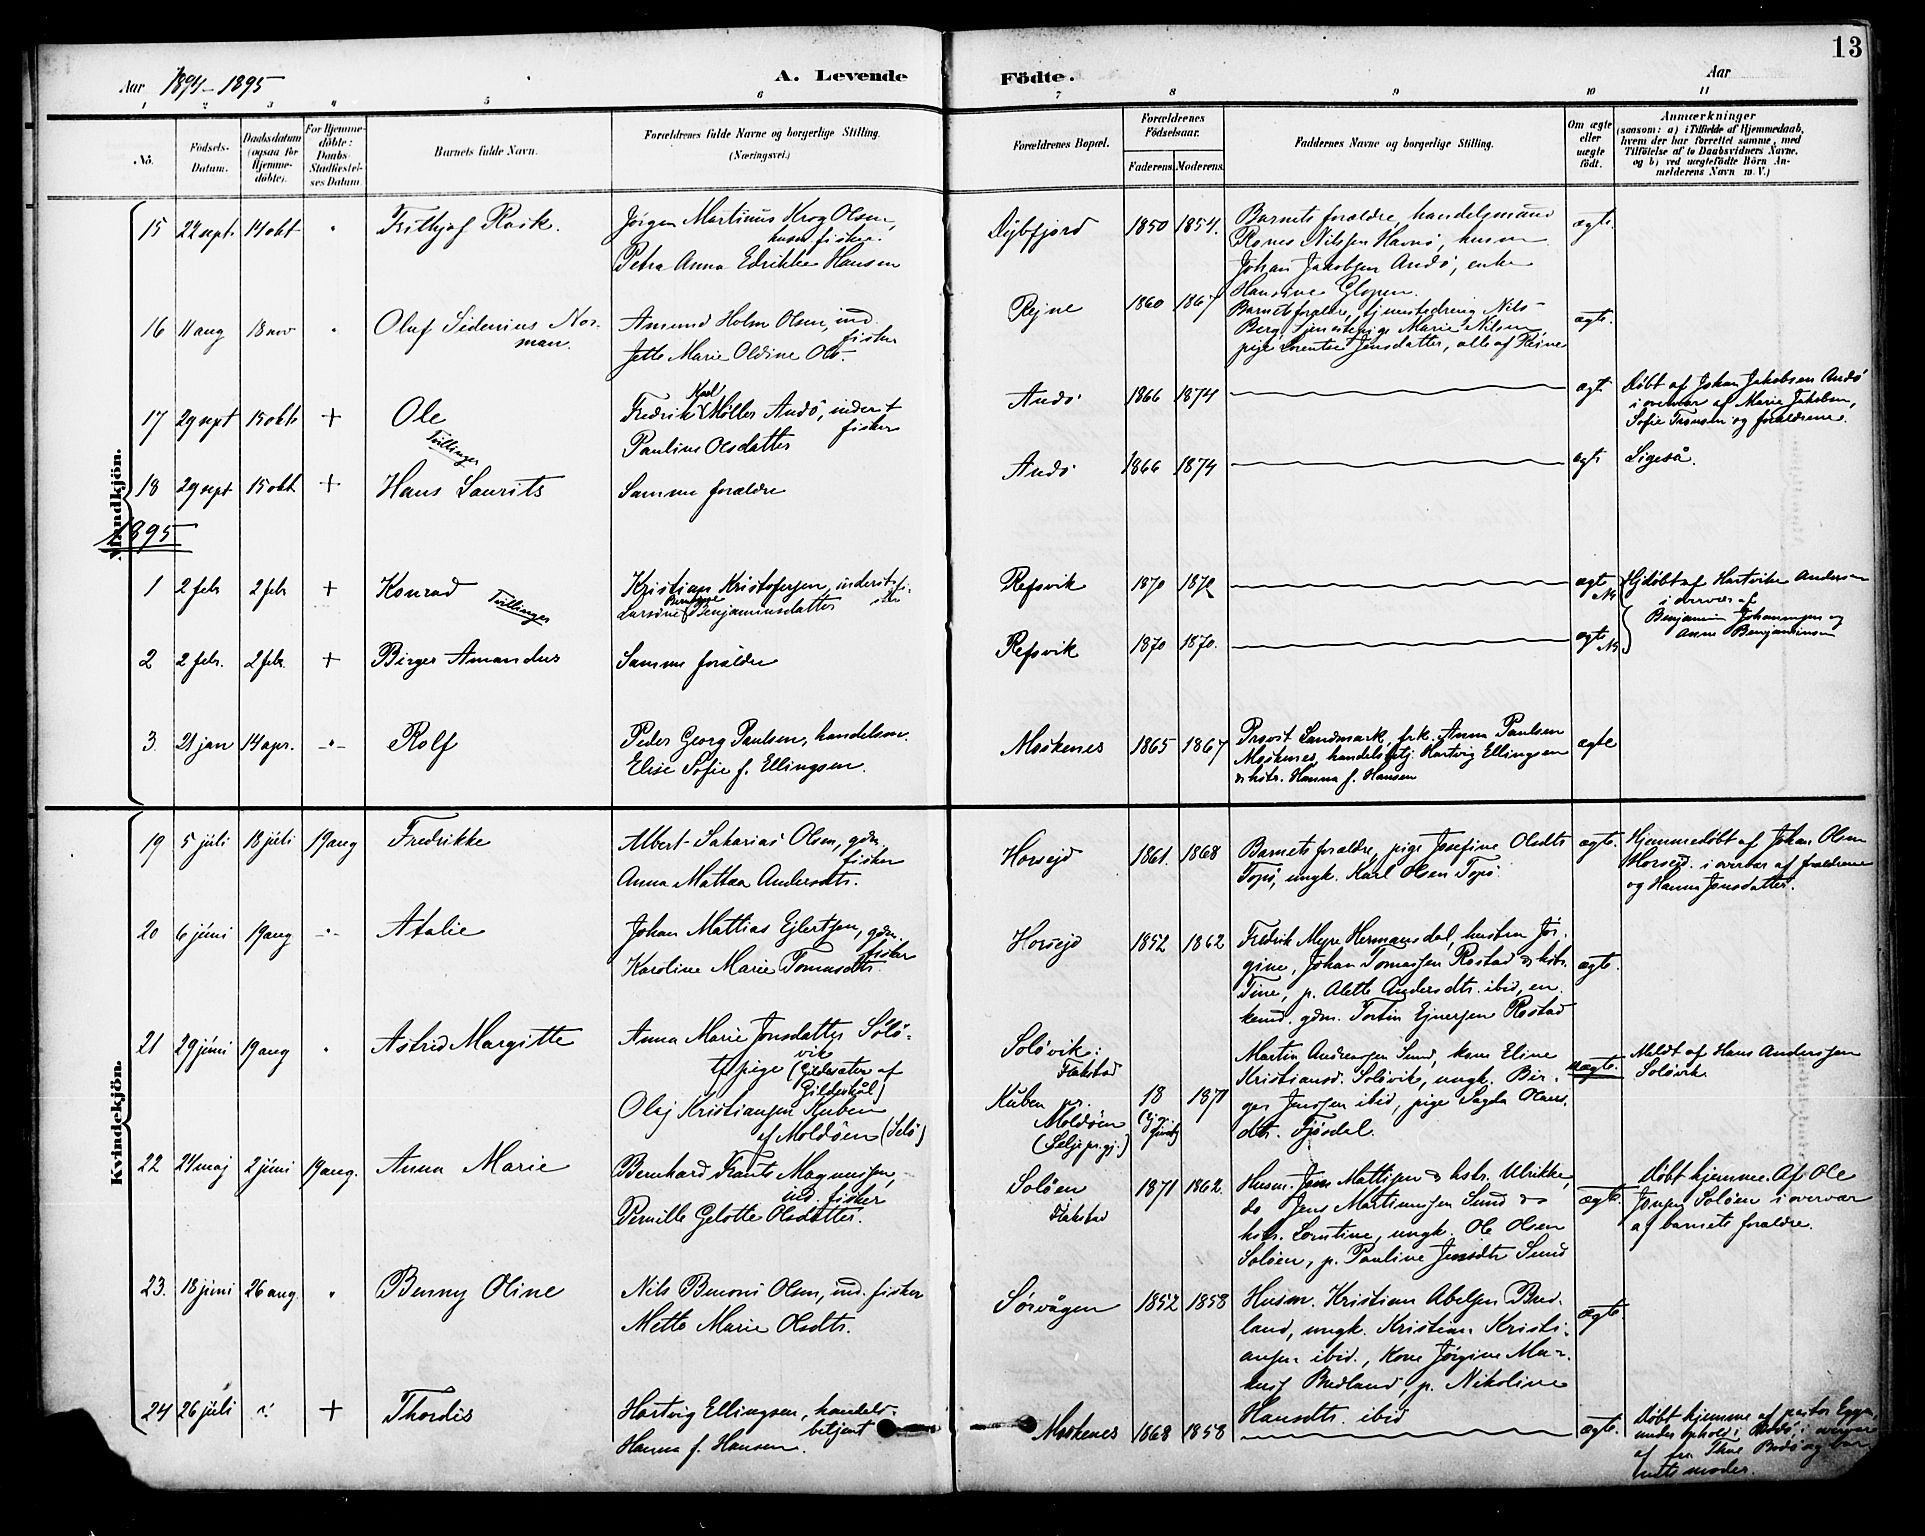 13
Aar 1894-1895
A. Levende Födte.
Aar
1 2 3 4 5 6 7 8 9 10 11
No.
Födsels-
Datum.
Daabsdatum
(ogsaa for
Hjemme-
döbte).
For Hjemme-
döbte:
Daabs-
Stadfæstel-
ses Datum.
Barnets fulde Navn.
Forældrenes fulde Navne og borgerlige Stilling.
(Næringsvei.)
Forældrenes Bopæl.
Forældrenes
Födselsaar.
Faderens Moderens.
Faddernes Navne og borgerlige Stilling.
Om ægte
eller
uægte
födt.
Anmærkninger
(saasom: a) i Tilfælde af Hjemmedaab,
hvem der har forrettet samme, med
Tilföielse af to Daabsvidners Navne,
og b) ved uægtefödte Börn An-
melderens Navn m. V.)
Mandkjön.
15 22 sept. 14 okt " Frithjof Rask.
Jørgen Martinus Krog Olsen,
husm fisker.
Petra Anna Edrikke Hansen
Dybfjord 1850 1854.
Barnets forældre, handelsmand
Rones Nilssen Havnø, husm
Johan Jakobsen Andö, enke
Hansine Glopen.
ægte.
16 11 aug 18 nov " Oluf Sidenius Nor-
man.
Amund Holm Olsen, ind.
fisker
Jette Marie Oldine Ols-
Rejne 1860 1867
Barnets forældre, tjenestedreng Nils
Berg, tjenestepige Marie Nilsen,
pige Lorentze Jensdatter, alle af Rejne
ægte.
17 29 sept 15 okt + Ole
Tvillinger
Fredrik Karl Møller Andö, inderst
fisker
Pauline Olsdatter
Andö 1866 1874
ægt.
Döbt af Johan Jakobsen Andö
i overvær af Marie Jakobsen,
Sofie Tronsen og forældrene.
18 29 sept 15 okt + Hans Laurits
Samme forældre
Andö 1866 1874
ægt
Ligeså.
1895
1 2 febr 2 febr + Konrad Tvillinger
Kristian Kristofersen, inderst fi-
sker
Larsine Berntine Benjaminsdatter
Refsvik 1870 1870
ægte
Hjdöbt af Hartvike Andersen
i overvær af
Benjamin Johannesen og
Anne Benjaminsen
2 2 febr. 2 febr + Birger Amandus
Samme forældre
Refsvik 1870 1870.
ægte
3. 21 jan 14 apr. -"- Rolf
Peder Georg Paulsen, handelsm.
Elise Sofie f. Ellingsen.
Moskenes 1865 1867
Provst Landmark, frk. Anna Paulsen
Moskenes, handelsbetj. Hartvig Ellingsen
& hstr. Hanna f. Hansen
ægte
Kvindekjön.
19 5 juli 18 juli 19 aug Fredrikke
Albert Sakarias Olsen, gdm.
fisker
Anna Mattea Andersdtr.
Horsejd 1861. 1868
Barnets forældre, pige Josefine Olsdtr
Topö, ungk. Karl Olsen Topö.
ægte.
Hjemmedöbt af Johan Olsen
Horsejd. i overvær af forældrene
og Hanna Jensdatter.
20 6 juni 19 aug -"- Atalie
Johan Mattias Ejlertsen, gdm.
fisker
Karoline Marie Tomasdtr.
Horsejd 1852 1862
Fredrik Myre Hermansdal, hustru Jör-
gine, Johan Tomassen Rostad & hstr.
Tine, p. Alette Andersdtr. ibid, en-
kemd. gdm. Torstin Ejnersen Rostad
ægte.
21 29 juni 19 aug " Astrid Margitte
Anna Marie Jonsdatter Solö-
vik
tj. pige (Gilderater af
Gildeskål)
Olaj Kristiansen Kuben
af Moldöen (Selö)
Solövik:
Flakstad
Kuben pr.
Moldöen
(Selje pr.gj.)
18 1871
Martin Andreassen Sund, kone Eline
Kristiansd. Solövik, ungk. Bir-
ger Jenssen ibid, pige Sagda Olaus-
dtr. Fjösdal.
uægte.
Meldt af Hans Anderssen
Solövik.
22 24 maj 2 juni 19 aug. Anna Marie
Bernhard Frants Magnussen,
ind. fisker
Pernille Gelotte Olsdatter.
Solöen
Flakstad
1871 1862.
Husm. Jens Mattisen & hstr. Ulrikke,
do Jens Martinussen Sund &
hstr. Lorntine, ungk. Ole Olsen
Solöen, p. Pauline Jensdtr Sund
ægte.
Döbt hjemme. Af Ole
Jensen Solöen i overvær
af barnets forældre.
23. 18 juni 26 aug. " Benny Oline
Nils Benoni Olsen, ind. fisker
Mette Marie Olsdtr.
Sörvågen 1852 1858
Husm. Kristian Abelsen Bud-
land, ungk. Kristian Kristi-
ansen ibid., Kone Jörgine Mar-
kusd Budland, p. Nikoline
Hansdtr. ibid
ægte.
24 26 juli + Thordis
Hartvig Ellingsen, handels-
betjent
Hanna f. Hansen.
Moskenes 1868 1858
ægte.
Döbt hjemme af pastor Eggen
under ophold i Bodö, i overvær
af fru Thue Bodö og bar-
nets moder.